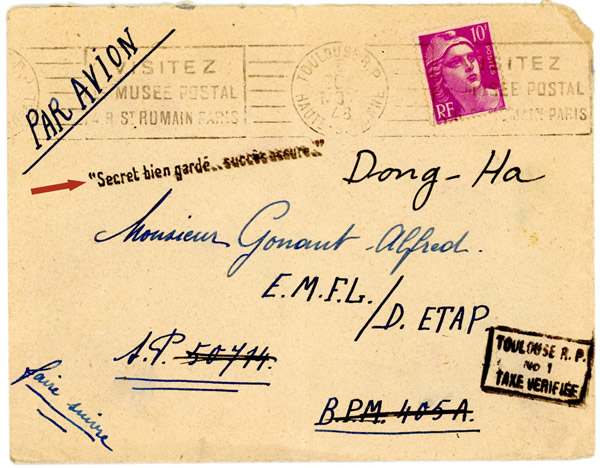 PAR AVION
VISITEZ
MUSEE POSTAL
4 R. ST ROMAIN PARIS
TOULOUSE R.P.
HAUTE
48
10F
RF
VISITEZ
MUSEE POSTAL
ROMAIN PARIS
"Secret bien gardé.. succès assuré.."
Dong-Ha
Monsieur Gonaut Alfred.
E.M.F.L./D. ETAP.
S.P. 50714.
TOULOUSE R.P.
No 1
TAXE VERIFIEE
faire suivre
B.P.M. 405A.